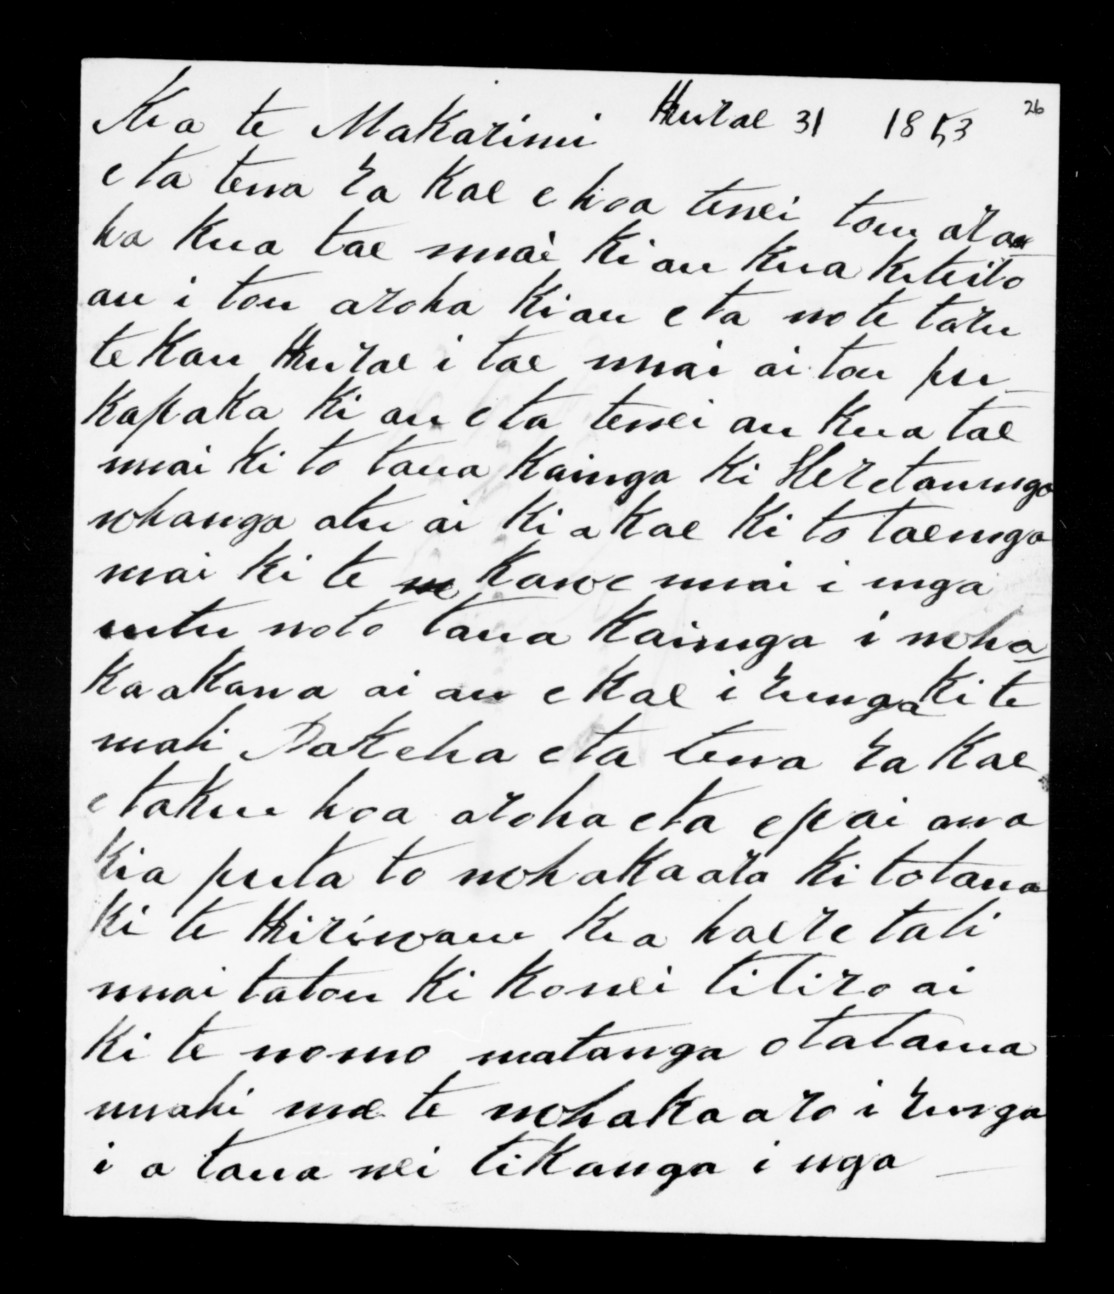 26
Hurae 31 1853
Kia te Makarini
e ta tena ra koe e hoa tenei tou aro
ha kua tae mai ki au kua kite ito
au i tou aroha ki au e ta no te toru
te kau Hurae i tae mai ai tou pu-
kapuka ki au e ta tenei au kua tae
mai ki to taua kainga ki Heretaunga
whanga atu ai ki a koe ki to taenga
mai ki te kawe mai i nga
utu no to taua kainga i wha
kaakona ai au e koe i runga ki te
mahi Pakeha e ta tena ra koe
e taku hoa aroha e ta e pai ana
kia puta to whakaaro ki to taua
ki te Hiriwanu kia haere tahi
mai tatou ki konei titiro ai
ki te nomo matanga o ta taua
mahi me te whakaaro i runga
i a taua nei tikanga i nga